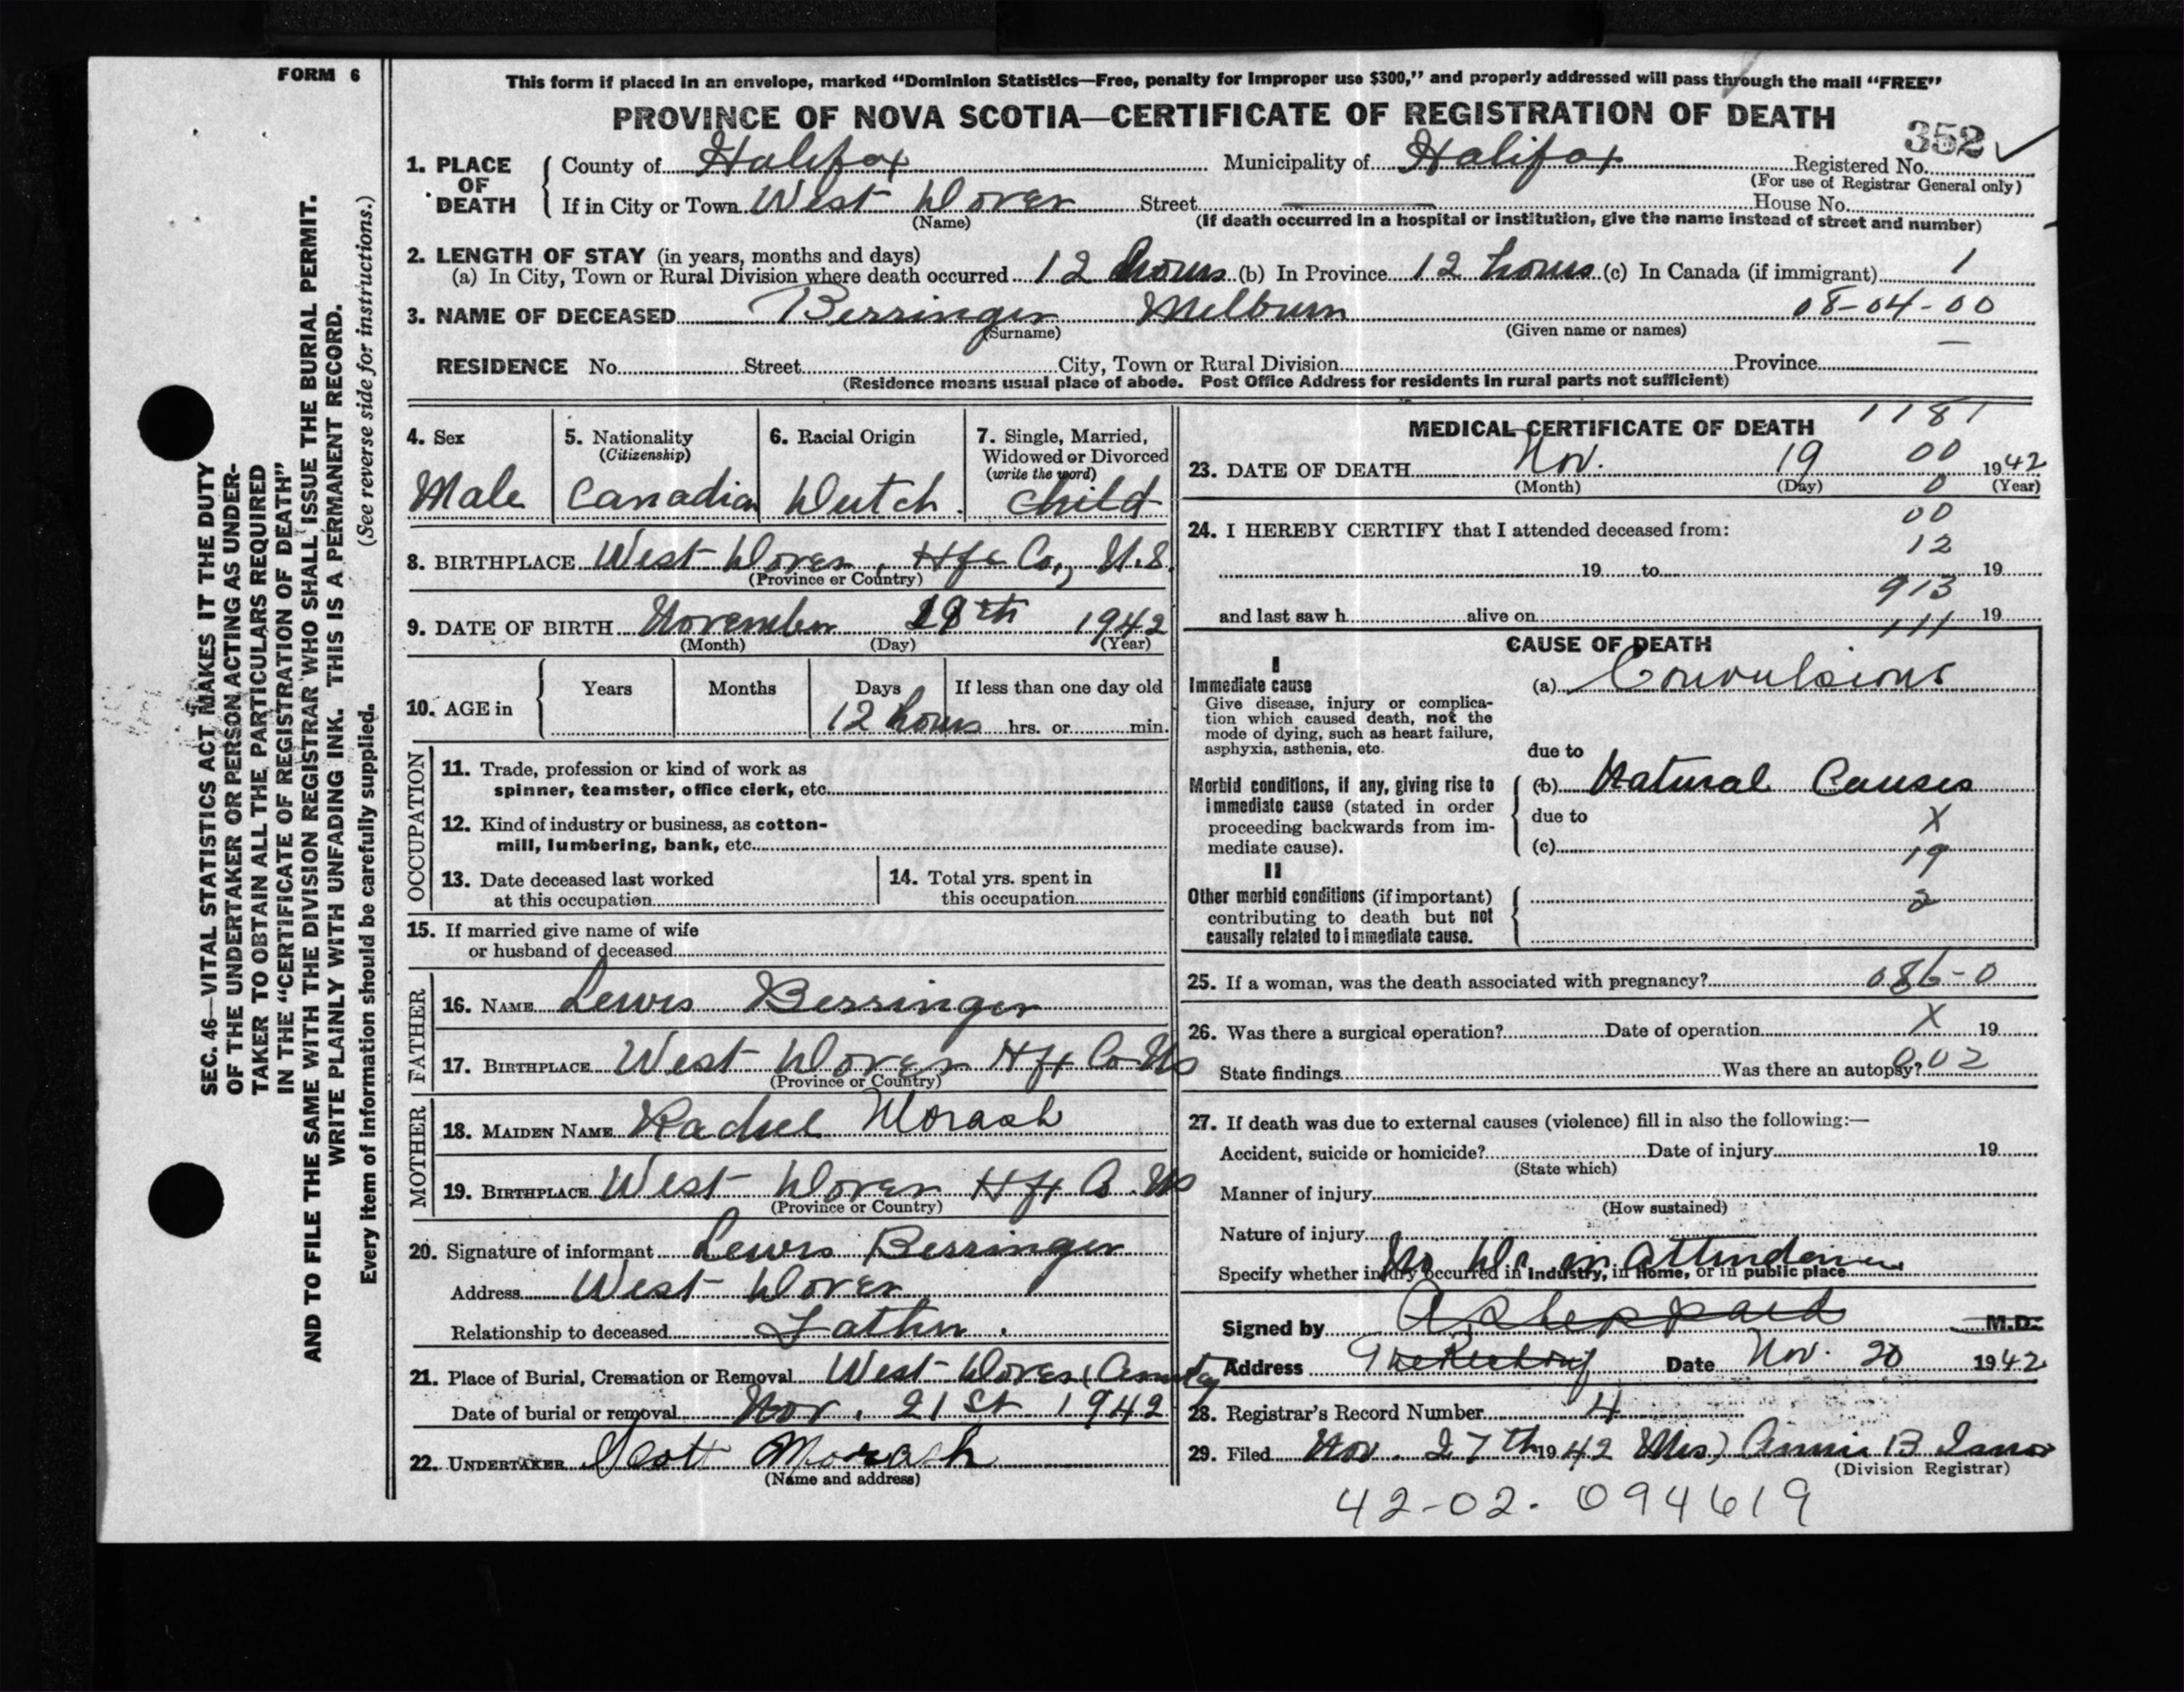 FORM 6
This form if placed in an envelope, marked “Dominion Statistics—Free, penalty for improper use $300,” and properly addressed will pass through the mail “FREE”
PROVINCE OF NOVA SCOTIA—CERTIFICATE OF REGISTRATION OF DEATH
352
1. PLACE OF DEATH
County of Halifax Municipality of Halifax Registered No.
(For use of Registrar General only)
If in City or Town West Dover Street House No.
(Name) (If death occurred in a hospital or institution, give the name instead of street and number)
2. LENGTH OF STAY (in years, months and days)
(a) In City, Town or Rural Division where death occurred 12 hours (b) In Province 12 hours (c) In Canada (if immigrant) 1
3. NAME OF DECEASED Berringer Melburn 08-04-00
(Surname) (Given name or names)
RESIDENCE No. Street City, Town or Rural Division Province
(Residence means usual place of abode. Post Office Address for residents in rural parts not sufficient)
4. Sex
Male
5. Nationality
(Citizenship)
Canadian
6. Racial Origin
Dutch.
7. Single, Married,
Widowed or Divorced
(write the word)
Child
8. BIRTHPLACE West Dover, Hfx Co., N.S.
(Province or Country)
9. DATE OF BIRTH November 19th 1942
(Month) (Day) (Year)
10. AGE in
Years Months Days If less than one day old
12 hours hrs. or min.
OCCUPATION
11. Trade, profession or kind of work as
spinner, teamster, office clerk, etc.
12. Kind of industry or business, as cotton-
mill, lumbering, bank, etc.
13. Date deceased last worked
at this occupation
14. Total yrs. spent in
this occupation
15. If married give name of wife
or husband of deceased
FATHER
16. NAME Lewis Berringer
17. BIRTHPLACE West Dover Hfx Co NS
(Province or Country)
MOTHER
18. MAIDEN NAME Rachel Morash
19. BIRTHPLACE West Dover Hfx Co. NS
(Province or Country)
20. Signature of informant Lewis Berringer
Address West Dover
Relationship to deceased Father.
21. Place of Burial, Cremation or Removal West Dover Cemetery
Date of burial or removal Nov. 21st 1942
22. UNDERTAKER Scott Morash
(Name and address)
MEDICAL CERTIFICATE OF DEATH 1181
23. DATE OF DEATH Nov. 19 00 1942
(Month) (Day) 0 (Year)
24. I HEREBY CERTIFY that I attended deceased from: 00
12
19 to 19
913
and last saw h alive on 19
111
CAUSE OF DEATH
I
Immediate cause
Give disease, injury or complica-
tion which caused death, not the
mode of dying, such as heart failure,
asphyxia, asthenia, etc.
(a) Convulsions
due to
Morbid conditions, if any, giving rise to
immediate cause (stated in order
proceeding backwards from im-
mediate cause).
(b) Natural Causes
due to X
(c) 19
II
Other morbid conditions (if important)
contributing to death but not
causally related to immediate cause.
2
25. If a woman, was the death associated with pregnancy? 086-0
26. Was there a surgical operation? Date of operation X 19
State findings Was there an autopsy? 002
27. If death was due to external causes (violence) fill in also the following:—
Accident, suicide or homicide? Date of injury 19
(State which)
Manner of injury
(How sustained)
Nature of injury
No Dr in attendance
Specify whether injury occurred in industry, in home, or in public place
Signed by A Sheppard M.D.
Address The Rectory Date Nov. 20 1942
28. Registrar’s Record Number 4
29. Filed Nov. 27th 1942 Mrs) Annie B
(Division Registrar)
42-02. 094619
SEC. 46—VITAL STATISTICS ACT MAKES IT THE DUTY
OF THE UNDERTAKER OR PERSON ACTING AS UNDER-
TAKER TO OBTAIN ALL THE PARTICULARS REQUIRED
IN THE “CERTIFICATE OF REGISTRATION OF DEATH”
AND TO FILE THE SAME WITH THE DIVISION REGISTRAR WHO SHALL ISSUE THE BURIAL PERMIT.
WRITE PLAINLY WITH UNFADING INK. THIS IS A PERMANENT RECORD.
(See reverse side for instructions.)
Every item of information should be carefully supplied.